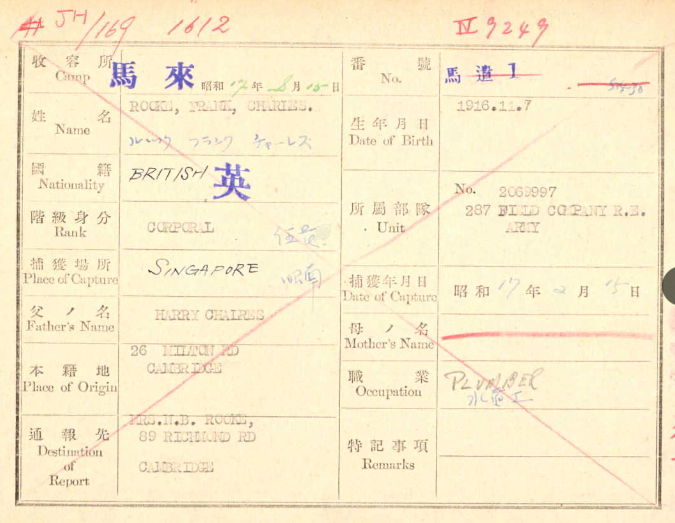 JH/169 1612 IV 9249
收容所 Camp 馬來 昭和17年8月15日
番號 No. 馬遣 1
姓名 Name ROOKE, FRANK, CHARLES.
ルーック フランク チャーレズ
生年月日 Date of Birth 1916.11.7
國籍 Nationality BRITISH 英
階級身分 Rank CORPORAL 伍長
所屬部隊 Unit No. 2069997
287 FIELD COMPANY R.E.
ARMY
捕獲場所 Place of Capture SINGAPORE 昭南
捕獲年月日 Date of Capture 昭和17年2月15日
父ノ名 Father's Name HARRY CHALRES
母ノ名 Mother's Name
本籍地 Place of Origin 26 MILTON RD
CAMBRIDGE
職業 Occupation PLUMBER
水電工
通報先 Destination of Report MRS.N.B. ROOKE,
89 RICHMOND RD
CAMBRIDGE
特記事項 Remarks